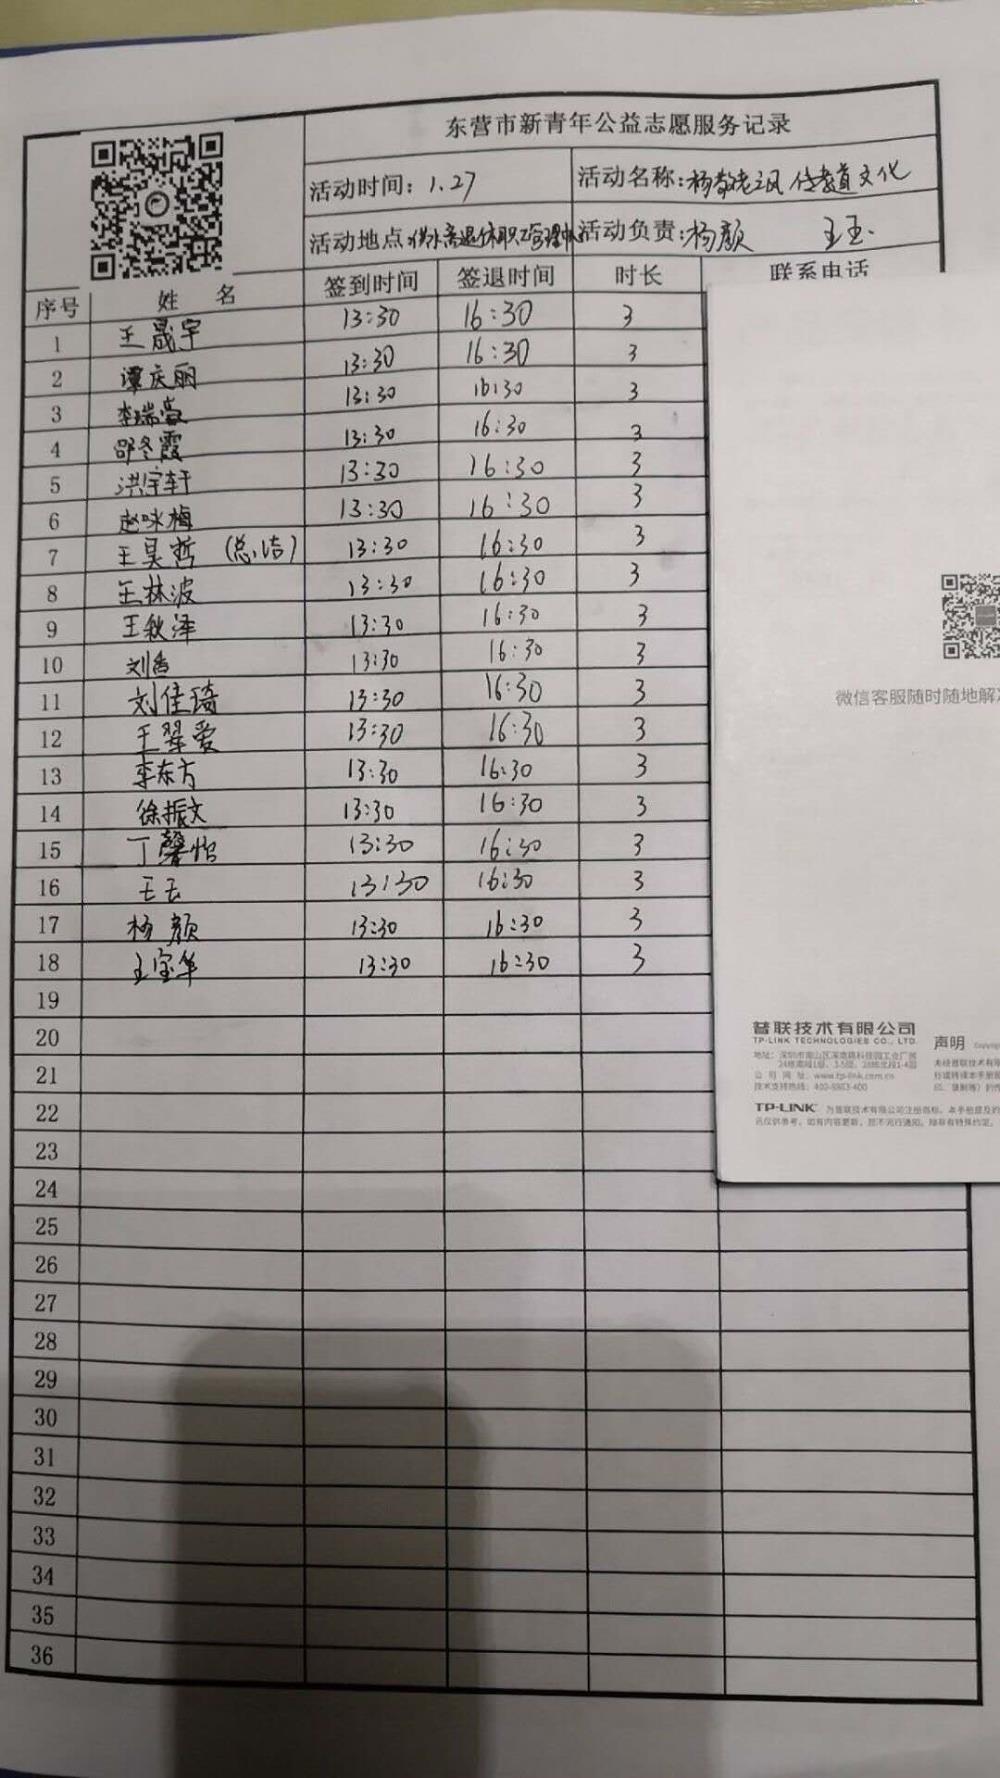 东营市新青年公益志愿服务记录
活动时间：1.27 活动名称：杨敬老之风 传孝道文化
活动地点：供水离退休职工管理中心 活动负责：杨颜 王玉
序号 姓 名 签到时间 签退时间 时长 联系电话
1 王晟宇 13:30 16:30 3
2 谭庆丽 13:30 16:30 3
3 李瑞豪 13:30 16:30 3
4 邵冬霞 13:30 16:30 3
5 洪宇轩 13:30 16:30 3
6 赵咏梅 13:30 16:30 3
7 王昊哲 (总结) 13:30 16:30 3
8 王林波 13:30 16:30 3
9 王秋泽 13:30 16:30 3
10 刘香 13:30 16:30 3
11 刘佳琦 13:30 16:30 3
12 王翠爱 13:30 16:30 3
13 李东方 13:30 16:30 3
14 徐振文 13:30 16:30 3
15 丁馨怡 13:30 16:30 3
16 王玉 13:30 16:30 3
17 杨颜 13:30 16:30 3
18 王宝华 13:30 16:30 3
19
20
21
22
23
24
25
26
27
28
29
30
31
32
33
34
35
36
微信客服随时随地解
普联技术有限公司
TP-LINK TECHNOLOGIES CO., LTD.
声明
公 司 网 址：www.tp-link.com.cn
技术支持热线：400-8863-400
TP-LINK 为普联技术有限公司注册商标。本手册提及的